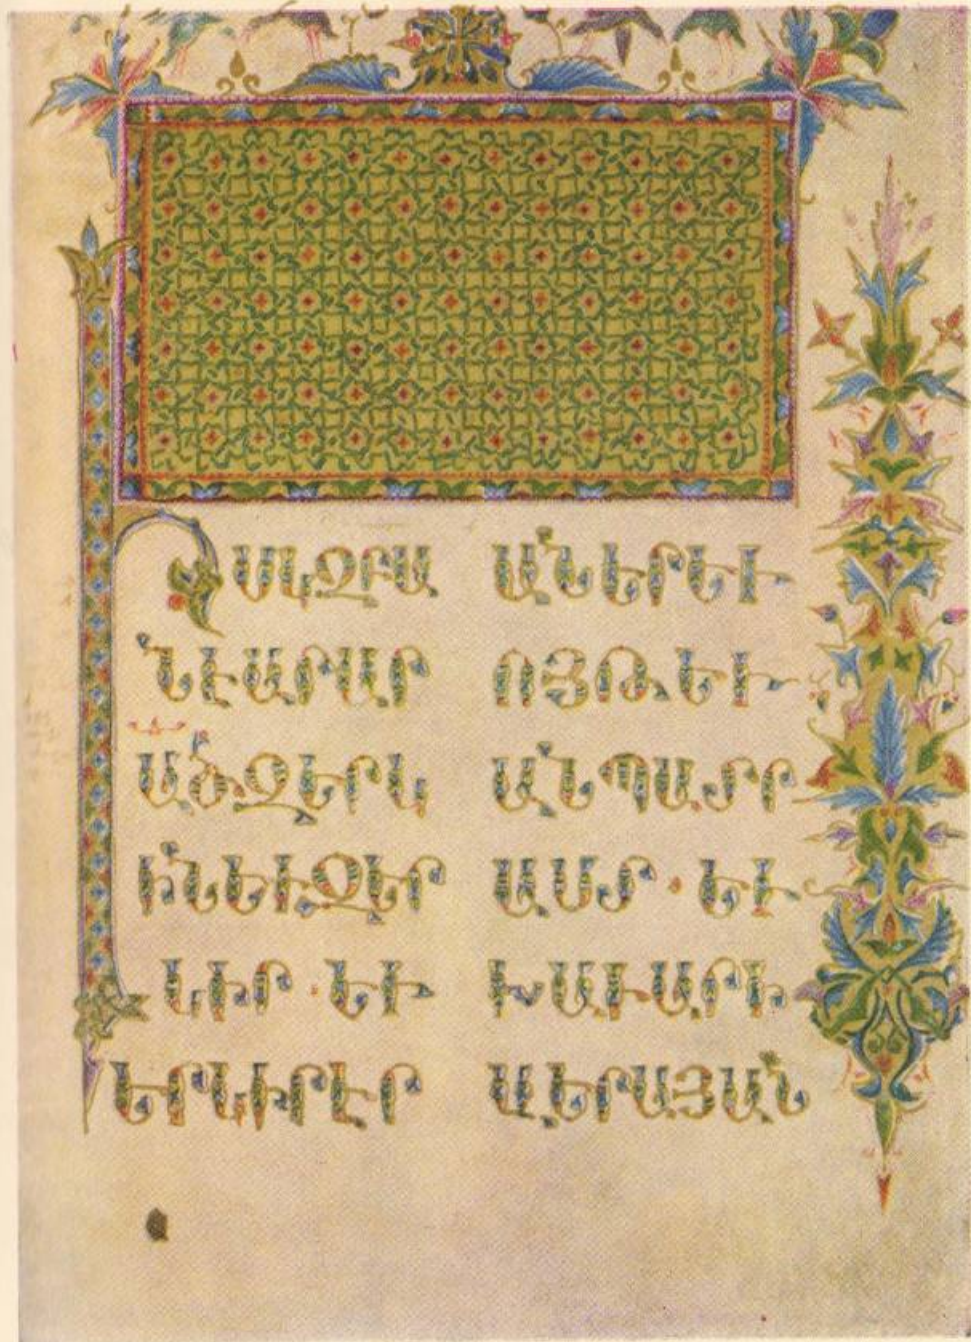 Ի ՍԿԶԲԱ
ՆԷ ԱՐԱՐ
ԱԾ ԶԵՐԿ
ԻՆ ԵՒ ԶԵՐ
ԿԻՐ . ԵՒ
ԵՐԿԻՐ ԷՐ
ԱՆԵՐԵՒ
ՈՅԹ ԵՒ
ԱՆՊԱՏՐ
ԱՍՏ . ԵՒ
ԽԱՒԱՐ Ի
ՎԵՐԱՅ ԱՆ